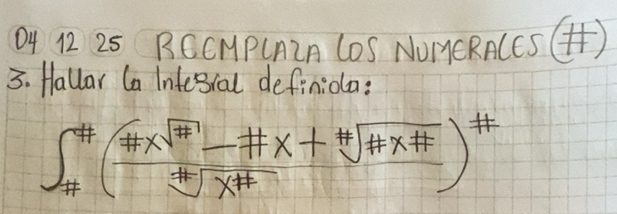 04 12 25 REEMPLAZA LOS NUMERALES (#)
3. Hallar la Integral definida:
∫_#^# ( (#x√# - #x + #√(#x#)) / #√(x#) )^#